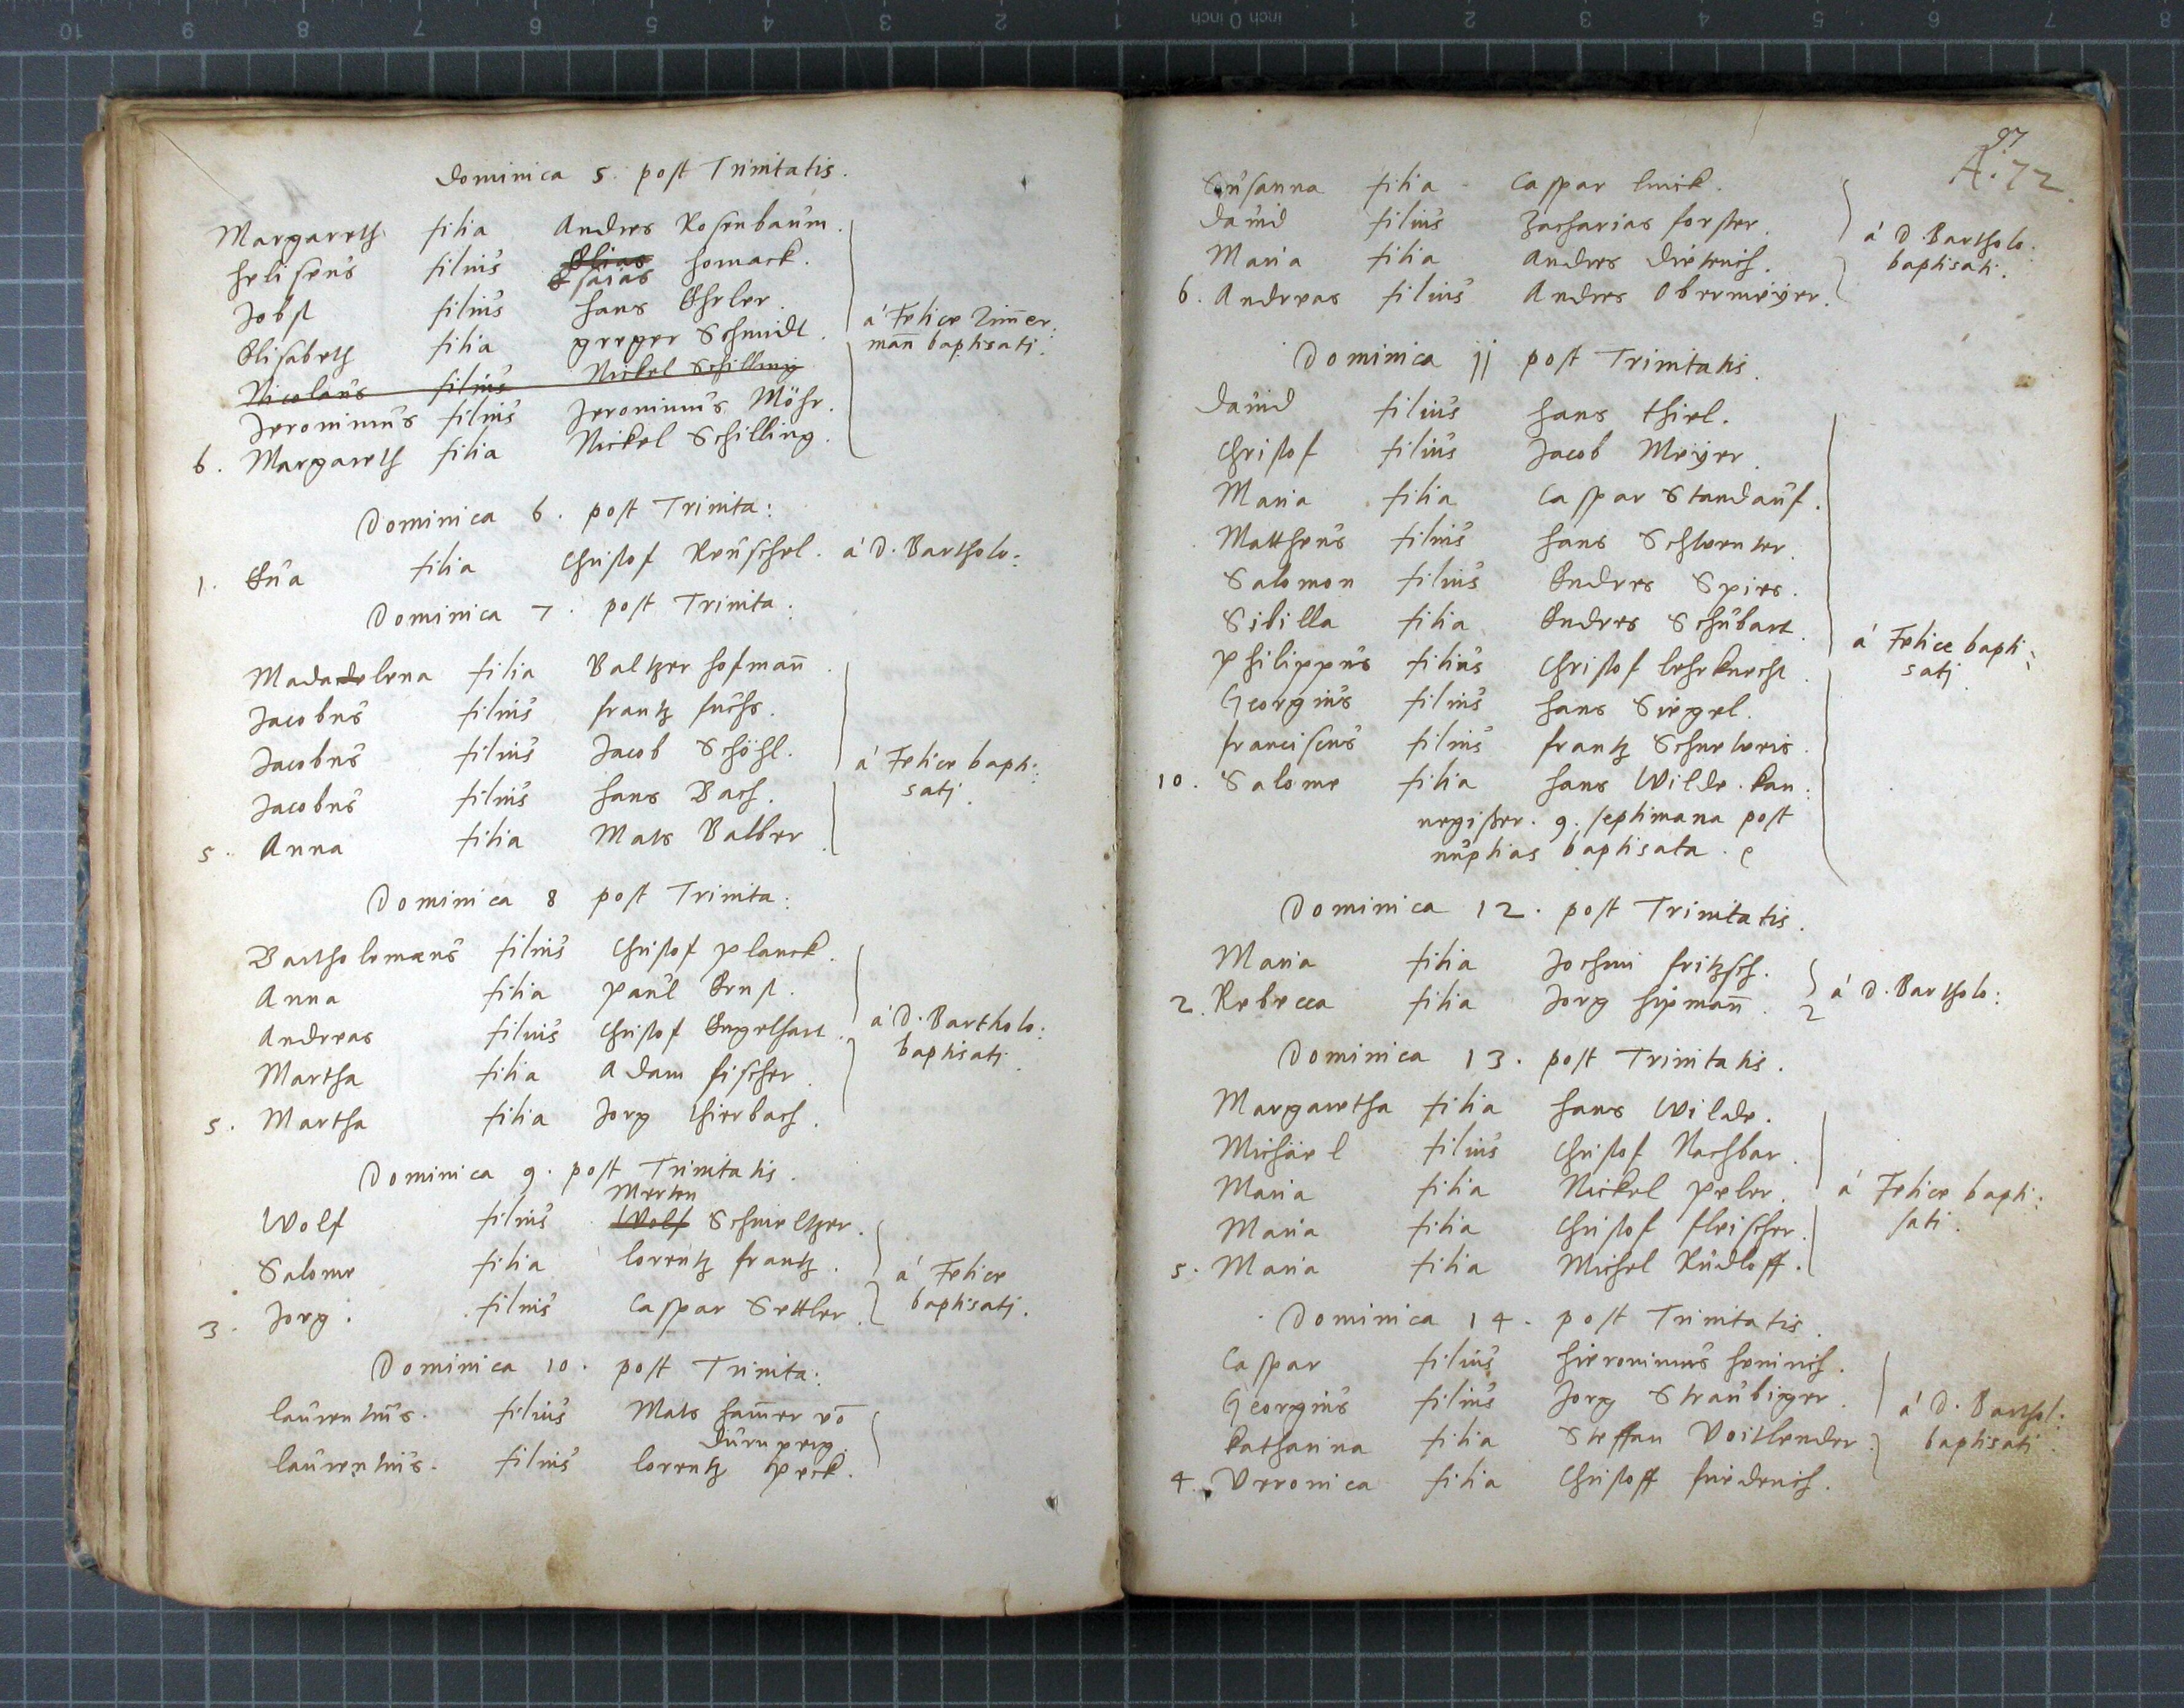 Dominica 5. post Trinitatis.
Margareth filia Andres Rosenbaum.
Heliseus filius Elias Homack.
Esaias
Jobst filius Hans Ehrler.
Elisabeth filia greger Schmidt.
Nicolaus filius Nickel Schilling
Jeronimus filius Jeronimus Möhr.
6. Margareth filia Nickel Schilling.
á Felice Zim̄er
man̄ baptisati.
Dominica 6. post Trinita:
1. Eua filia Christof Reuschel. á D. Bartholo:
Dominica 7. post Trinita:
Madadelena filia Baltzer Hofman̄.
Jacobus filius frantz fuchs.
Jacobus filius Jacob Schöhl.
Jacobus filius Hans Bach.
5. Anna filia Mats Balber
á Felice bapti:
satj.
Dominica 8 post Trinita:
Bartholomaeus filius Christof planck.
Anna filia paul Ernst.
Andreas filius Christof Engelhart.
Martha filia Adam fischer.
5. Martha filia Jorg thierbach.
á D. Bartholo:
baptisatj.
Dominica 9. post Trinitatis.
Merten
Wolf filius Wolf Schmeltzer.
Salome filia lorentz frantz.
3. Jorg. filius Caspar Settler.
á Felice
baptisatj.
Dominica 10. post Trinita:
laurentius. filius Mats Ham̄er vō
Dürnperg.
laurentius. filius lorentz speck.
97
A. 72
Susanna filia Caspar linck.
Dauid filius Zacharias forster.
Maria filia Andres Dieterich.
6. Andreas filius Andres Obermeÿer.
á D. Bartholo:
baptisati.
Dominica jj post Trinitatis.
Dauid filius Hans thiel.
Christof filius Jacob Meÿer.
Maria filia Caspar Standauf.
Mattheus filius Hans Schwenter.
Salomon filius Endres Spies.
Sibilla filia Endres Schubart.
Philippus filius Christof lehrknecht.
Georgius filius Hans Siegel.
franciscus filius frantz Schneweis.
10. Salome filia Hans Wilde. kan:
negisser. 9. septimana post
nuptias baptisata.
á Felice bapti:
satj.
Dominica 12. post Trinitatis.
Maria filia Jochim fritzsch.
2. Rebecca filia Jorg Hipman̄.
á D. Bartholo:
Dominica 13. post Trinitatis.
Margaretha filia Hans Wilde.
Michael filius Christof Nachbar.
Maria filia Nickel peler.
Maria filia Christof fleischer.
5. Maria filia Michel Rudloff.
á Felice bapti:
sati.
Dominica 14. post Trinitatis.
Caspar filius Hieronimus Heinrich.
Georgius filius Jorg Straubiger.
Katharina filia Steffan Voitlender.
4. Veronica filia Christoff friederich.
á D. Barthol:
baptisati.